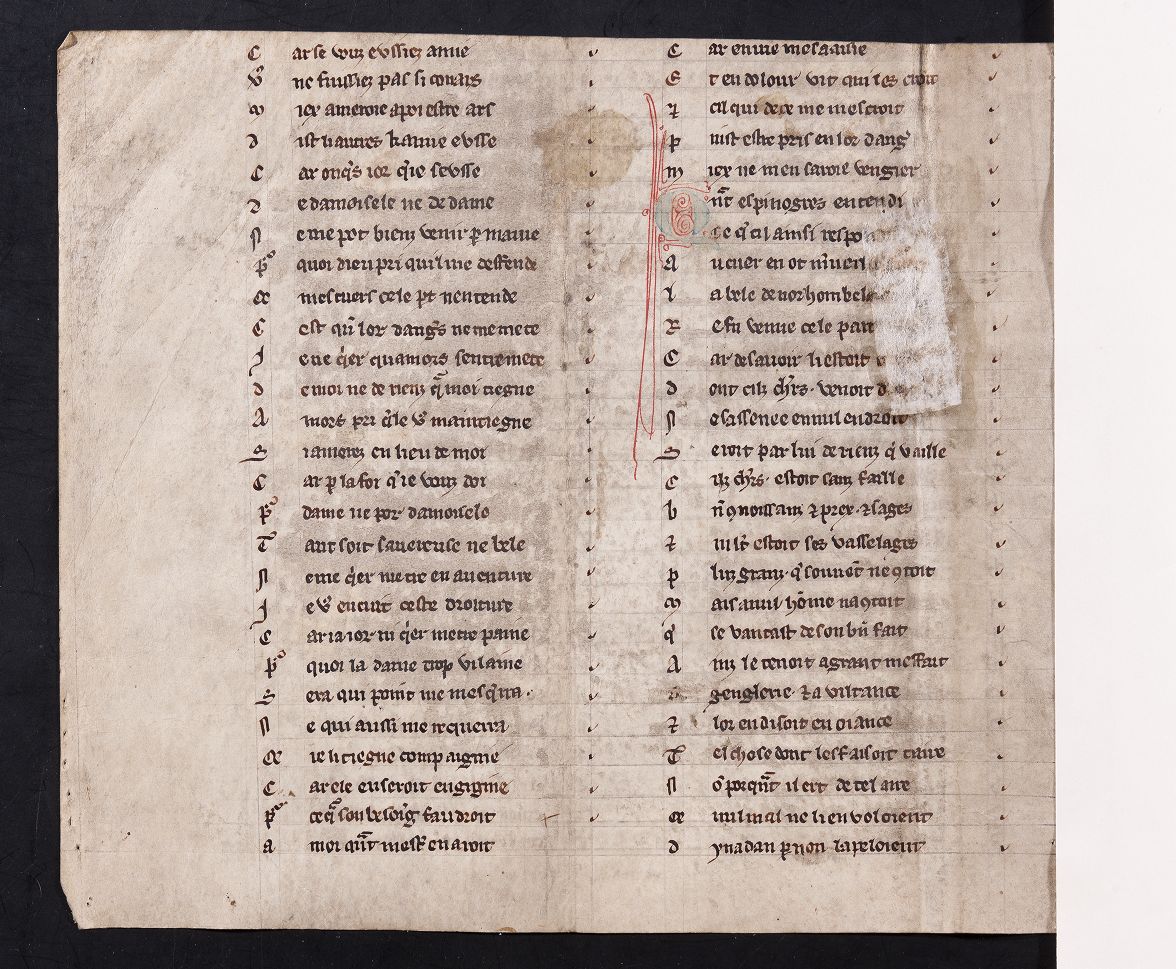 C ar se vouz eussiez amie
V̾ ne fussiez pas si cortais
M iex ameroie a por estre ars
D ist li autres k amie eusse
C ar onq̃s ior q̃ ie seusse
D e damoisele ne de dame
N e me pot bienz venir ꝑ mame
P̾ quoi dieu pri quil me deffende
Q mes cuers cele pt nentende
C est qu̾ lor dang̾s ne me mete
J e ne q̾er quamors sentremete
D e moi ne de rienz q̃ moi tiegne
A mors pri q̃le v̾ maintiegne
S i amerez en lieu de moi
C ar ꝑ la foi q̾ ie vouz doi
P̾ dame ne por damoisele
T ant soit sauereuse ne bele
N e me q̾er metre en auenture
J e v̾ encuit ceste droiture
C ar ia ior ni q̾er metre paine
P̾ quoi la dame trop vilaine
S era qui point me mesq̾rra .
N e qui aussi me requerra
Q ie li tiegne compaignie
C ar ele en seroit engignie
P̾ ce q̃ son besoig̾ faudroit
A moi qu̾t mest̾ en aroit
C ar en uie mesaaisie
E t en dolour vit qui les croit
⁊ cil qui de ce me mescroit
P uist estre pris en lor dang̾
M iex ne men saroie vengier
Q n̄t espinogres entendi
ce q̾ cil ainsi respo
A u cuer en ot m̾ueil
L a bele de norhombel
R e fu venue cele part
C ar de sauoir li estoit
D ont cilz ch̾rs . venoit d
N e sassenee en nul endroit
S eroit par lui de rienz q̾ vaille
C ilz ch̾rs . estoit sanz faille
B n̄ ꝯnoissanz ⁊ prex . ⁊ sages
⁊ m̄lt estoit ses vasselages
P luz granz . q̾ souuēt ne ꝯtoit
M ais a nul hōme na ꝯtoit
Q̾ se vantast de son bn̄ fait
A inz le tenoit a grant meffait
genglerie . ⁊ a viltance
⁊ lor en disoit en oiance
T el chose dont les faisoit taire
N o̾ porqūt il ert de tel aire
Q nul mal ne li en voloient
D ynadan ꝑ non lapeloient